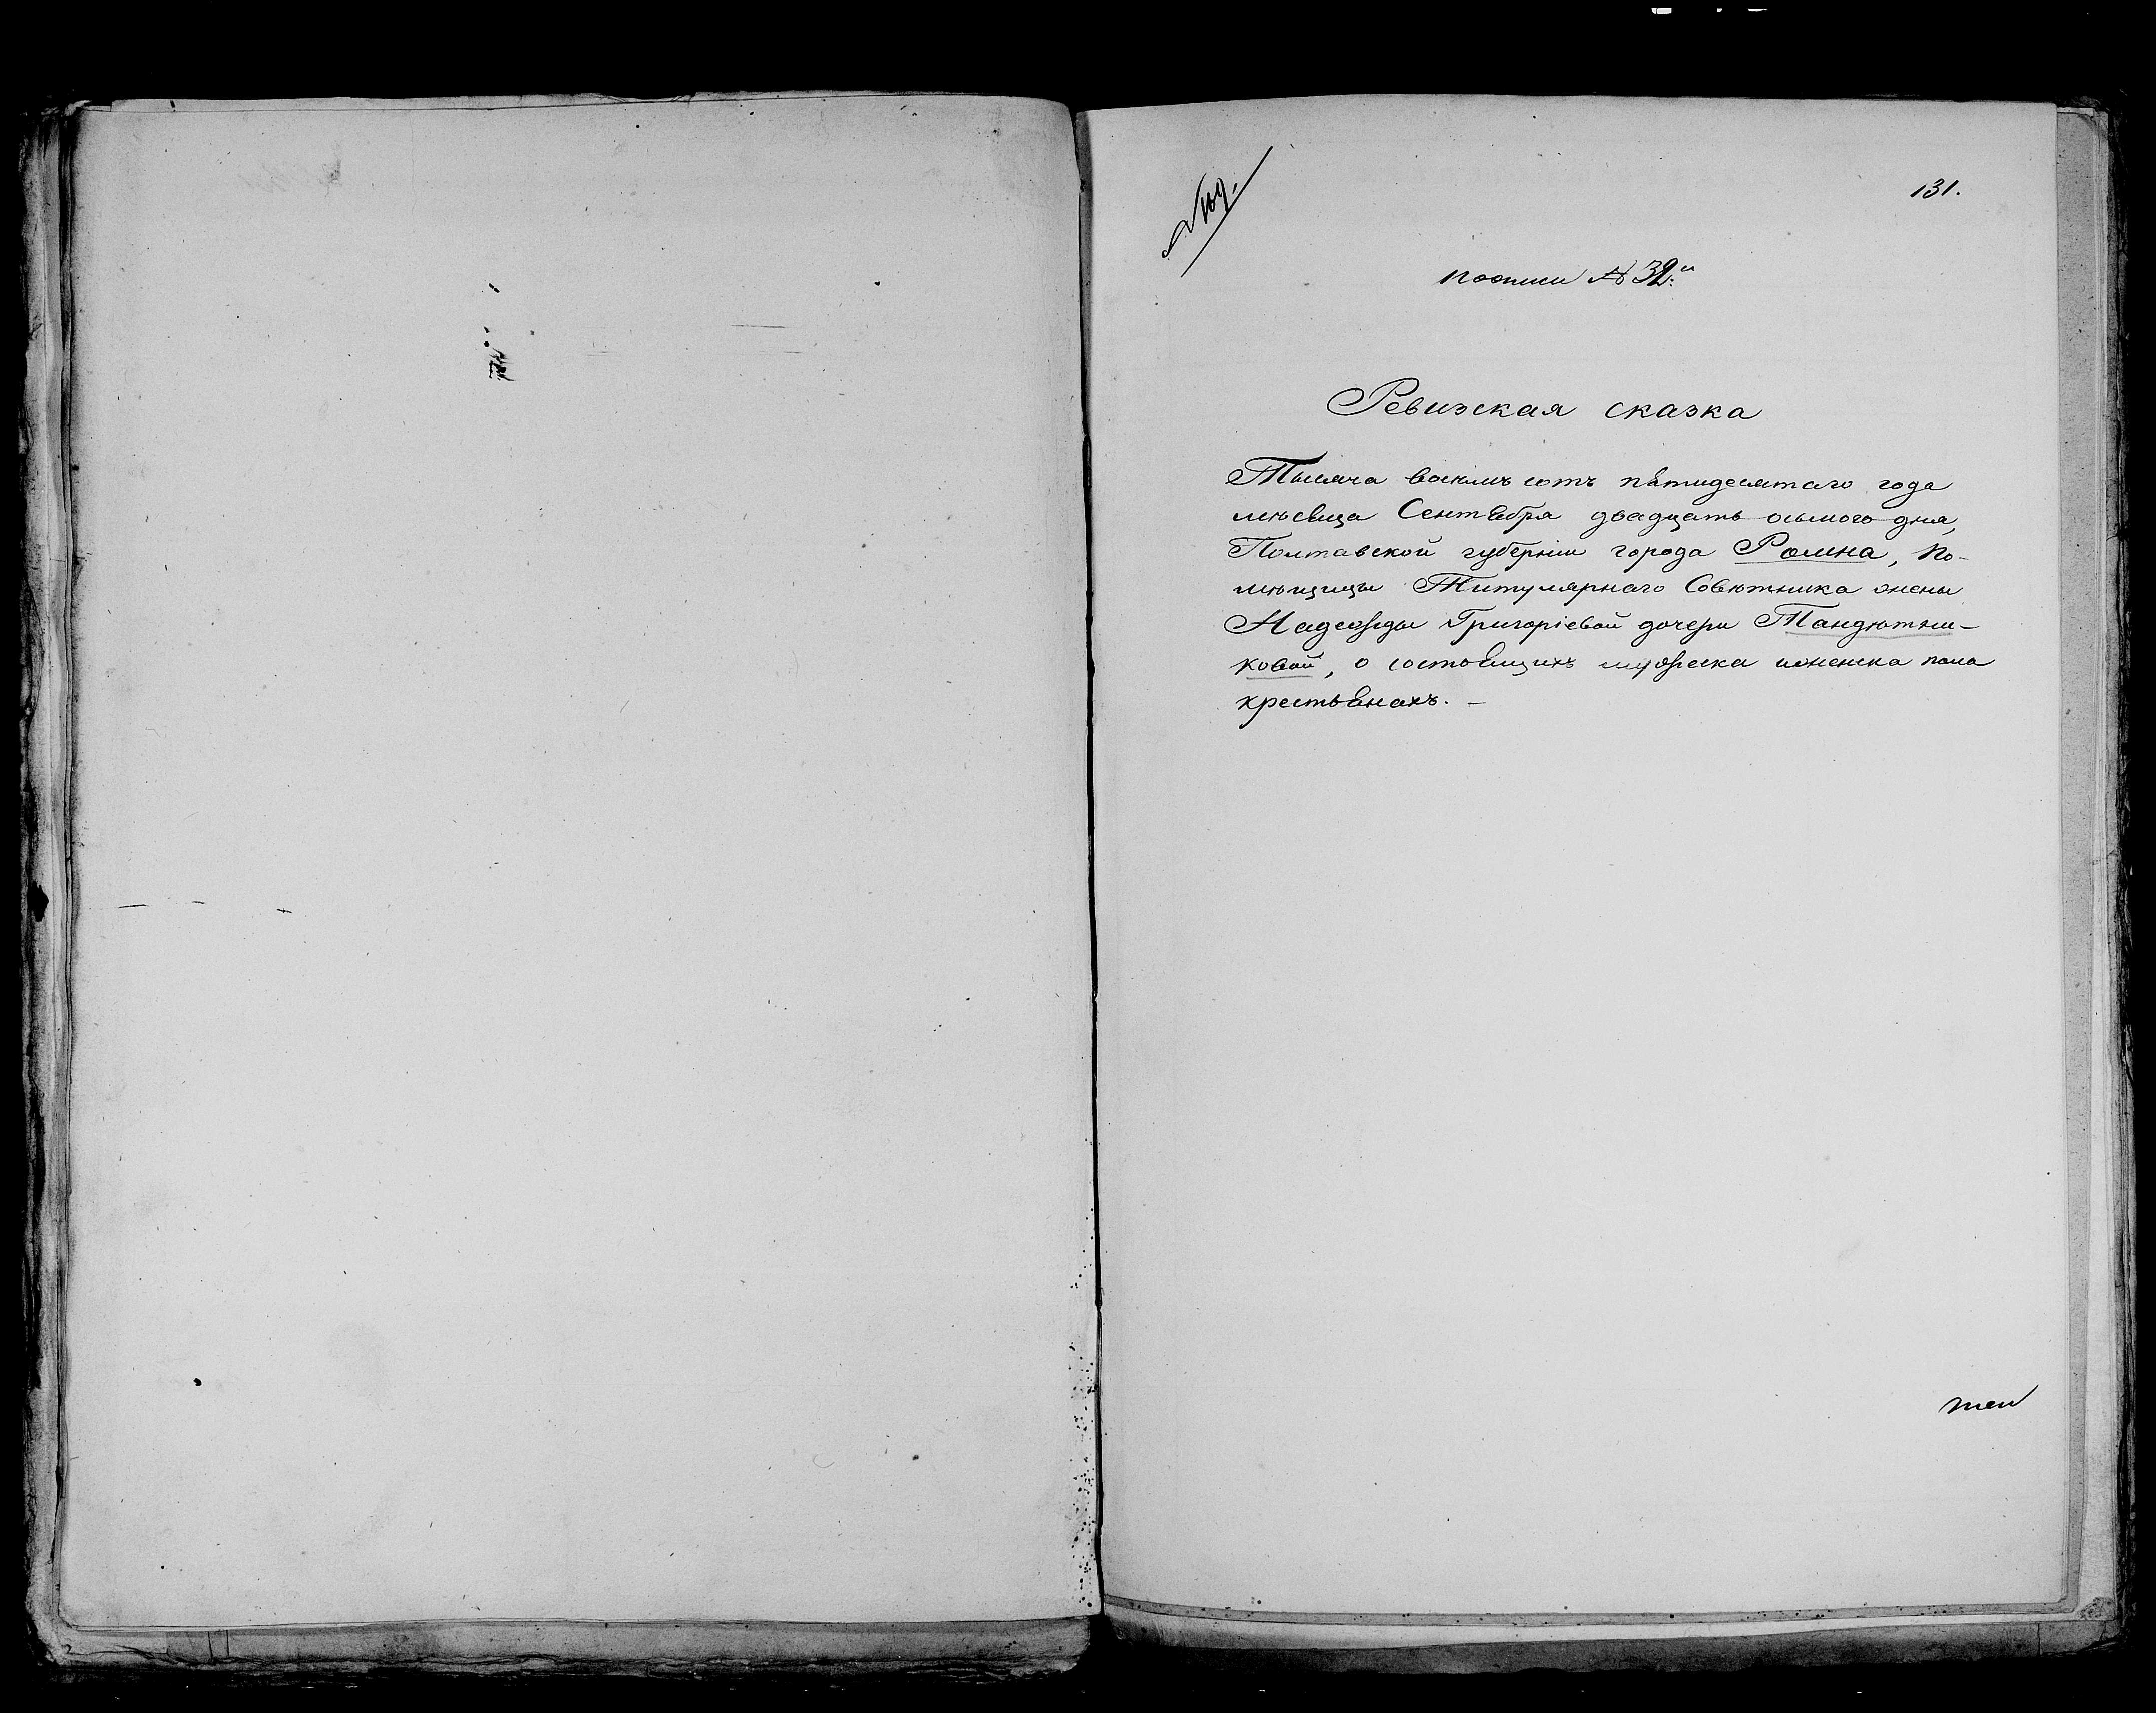 № 109.
131.
по описи № 32й
Ревизская сказка
Тысяча восемь сотъ пятидесятаго года
мѣсяца Сентября двадцать осьмого дня,
Полтавской губерніи города Ромна, по-
мѣщицы Титулярнаго Совѣтника жены
Надежды Григоріевой дочери Тандѣтни-
ковой, о состоящихъ мужеска иженска пола
крестьянахъ. —